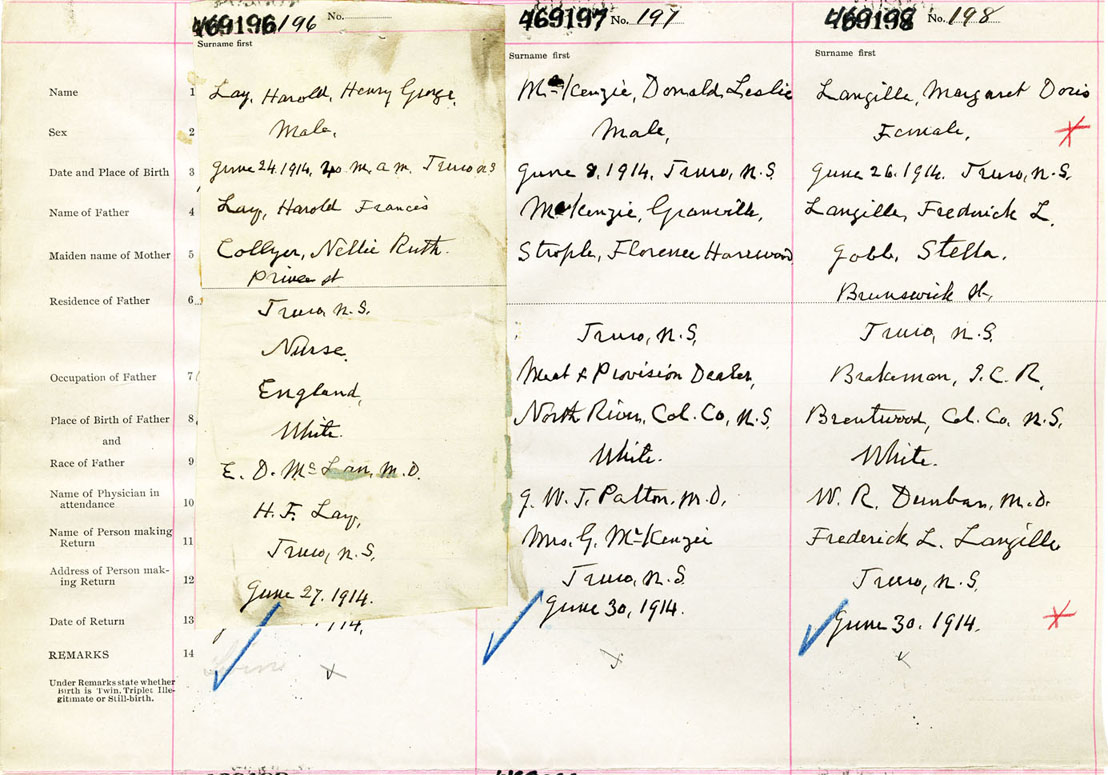 469196 196 No.
469197 No. 197
469198 No. 198
Surname first
Surname first
Surname first
Name 1 Lay, Harold, Henry George, McKenzie, Donald Leslie Langille, Margaret Doris
Sex 2 Male, Male, Female,
Date and Place of Birth 3 June 24. 1914, m. a m. Truro June 8, 1914, Truro, N.S. June 26. 1914. Truro, N.S.
Name of Father 4 Lay, Harold Francis McKenzie, Granville, Langille, Frederick L.
Maiden name of Mother 5 Collyer, Nellie Ruth. Strople, Florence Stella.
Prince st Brunswick St,
Residence of Father 6 Truro N.S. Truro, N.S, Truro, N.S.
Nurse,
Occupation of Father 7 England, Meat & Provision Dealer, Brakeman, I.C.R,
Place of Birth of Father 8 White. North River, Col. Co, N.S, Brentwood, Col. Co, N.S.
and
Race of Father 9 E. D. McLean, M.D. White. White.
Name of Physician in
attendance 10 H. F. Lay, J. W. T. Patton, M.D, W. R. Dunbar, M.D.
Name of Person making
Return 11 Truro, N.S, Mrs. G. McKenzie Frederick L. Langille
Address of Person mak-
ing Return 12 June 27. 1914. Truro, N.S. Truro, N.S,
Date of Return 13 June 30, 1914. June 30. 1914.
REMARKS 14
Under Remarks state whether
Birth is Twin, Triplet Ille-
gitimate or Still-birth.